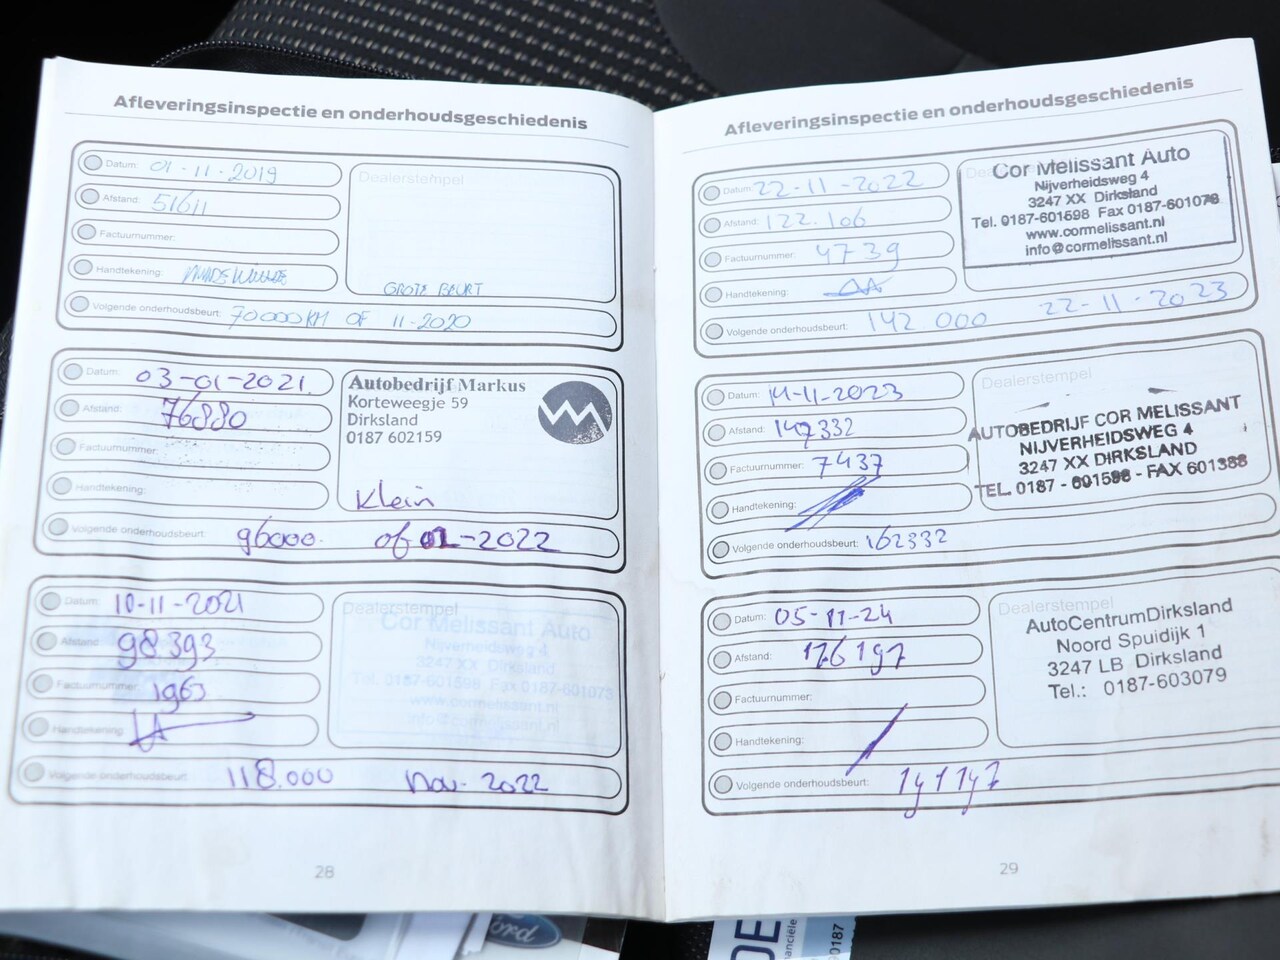 Afleveringsinspectie en onderhoudsgeschiedenis
Datum: 01-11-2019
Afstand: 51611
Factuurnummer:
Handtekening:
Volgende onderhoudsbeurt: 70000KM OF 11-2020
Dealerstempel
GROTE BEURT
Datum: 03-01-2021
Afstand: 76880
Factuurnummer:
Handtekening:
Volgende onderhoudsbeurt: 96000 of 01-2022
Autobedrijf Markus
Korteweegje 59
Dirksland
0187 602159
Klein
Datum: 10-11-2021
Afstand: 98393
Factuurnummer: 1963
Handtekening:
Volgende onderhoudsbeurt: 118.000 nov- 2022
Dealerstempel
Cor Melissant Auto
Nijverheidsweg 4
3247 XX Dirksland
Tel. 0187-601598 Fax 0187-601073
www.cormelissant.nl
info@cormelissant.nl
28
Afleveringsinspectie en onderhoudsgeschiedenis
Datum: 22-11-2022
Afstand: 122.106
Factuurnummer: 4739
Handtekening:
Volgende onderhoudsbeurt: 142 000 22-11-2023
Cor Melissant Auto
Nijverheidsweg 4
3247 XX Dirksland
Tel. 0187-601598 Fax 0187-601078
www.cormelissant.nl
info@cormelissant.nl
Datum: 14-11-2023
Afstand: 147332
Factuurnummer: 7437
Handtekening:
Volgende onderhoudsbeurt: 162332
Dealerstempel
AUTOBEDRIJF COR MELISSANT
NIJVERHEIDSWEG 4
3247 XX DIRKSLAND
TEL. 0187 - 601598 - FAX 601388
Datum: 05-11-24
Afstand: 176197
Factuurnummer:
Handtekening:
Volgende onderhoudsbeurt:
Dealerstempel
AutoCentrumDirksland
Noord Spuidijk 1
3247 LB Dirksland
Tel.: 0187-603079
29
Ford